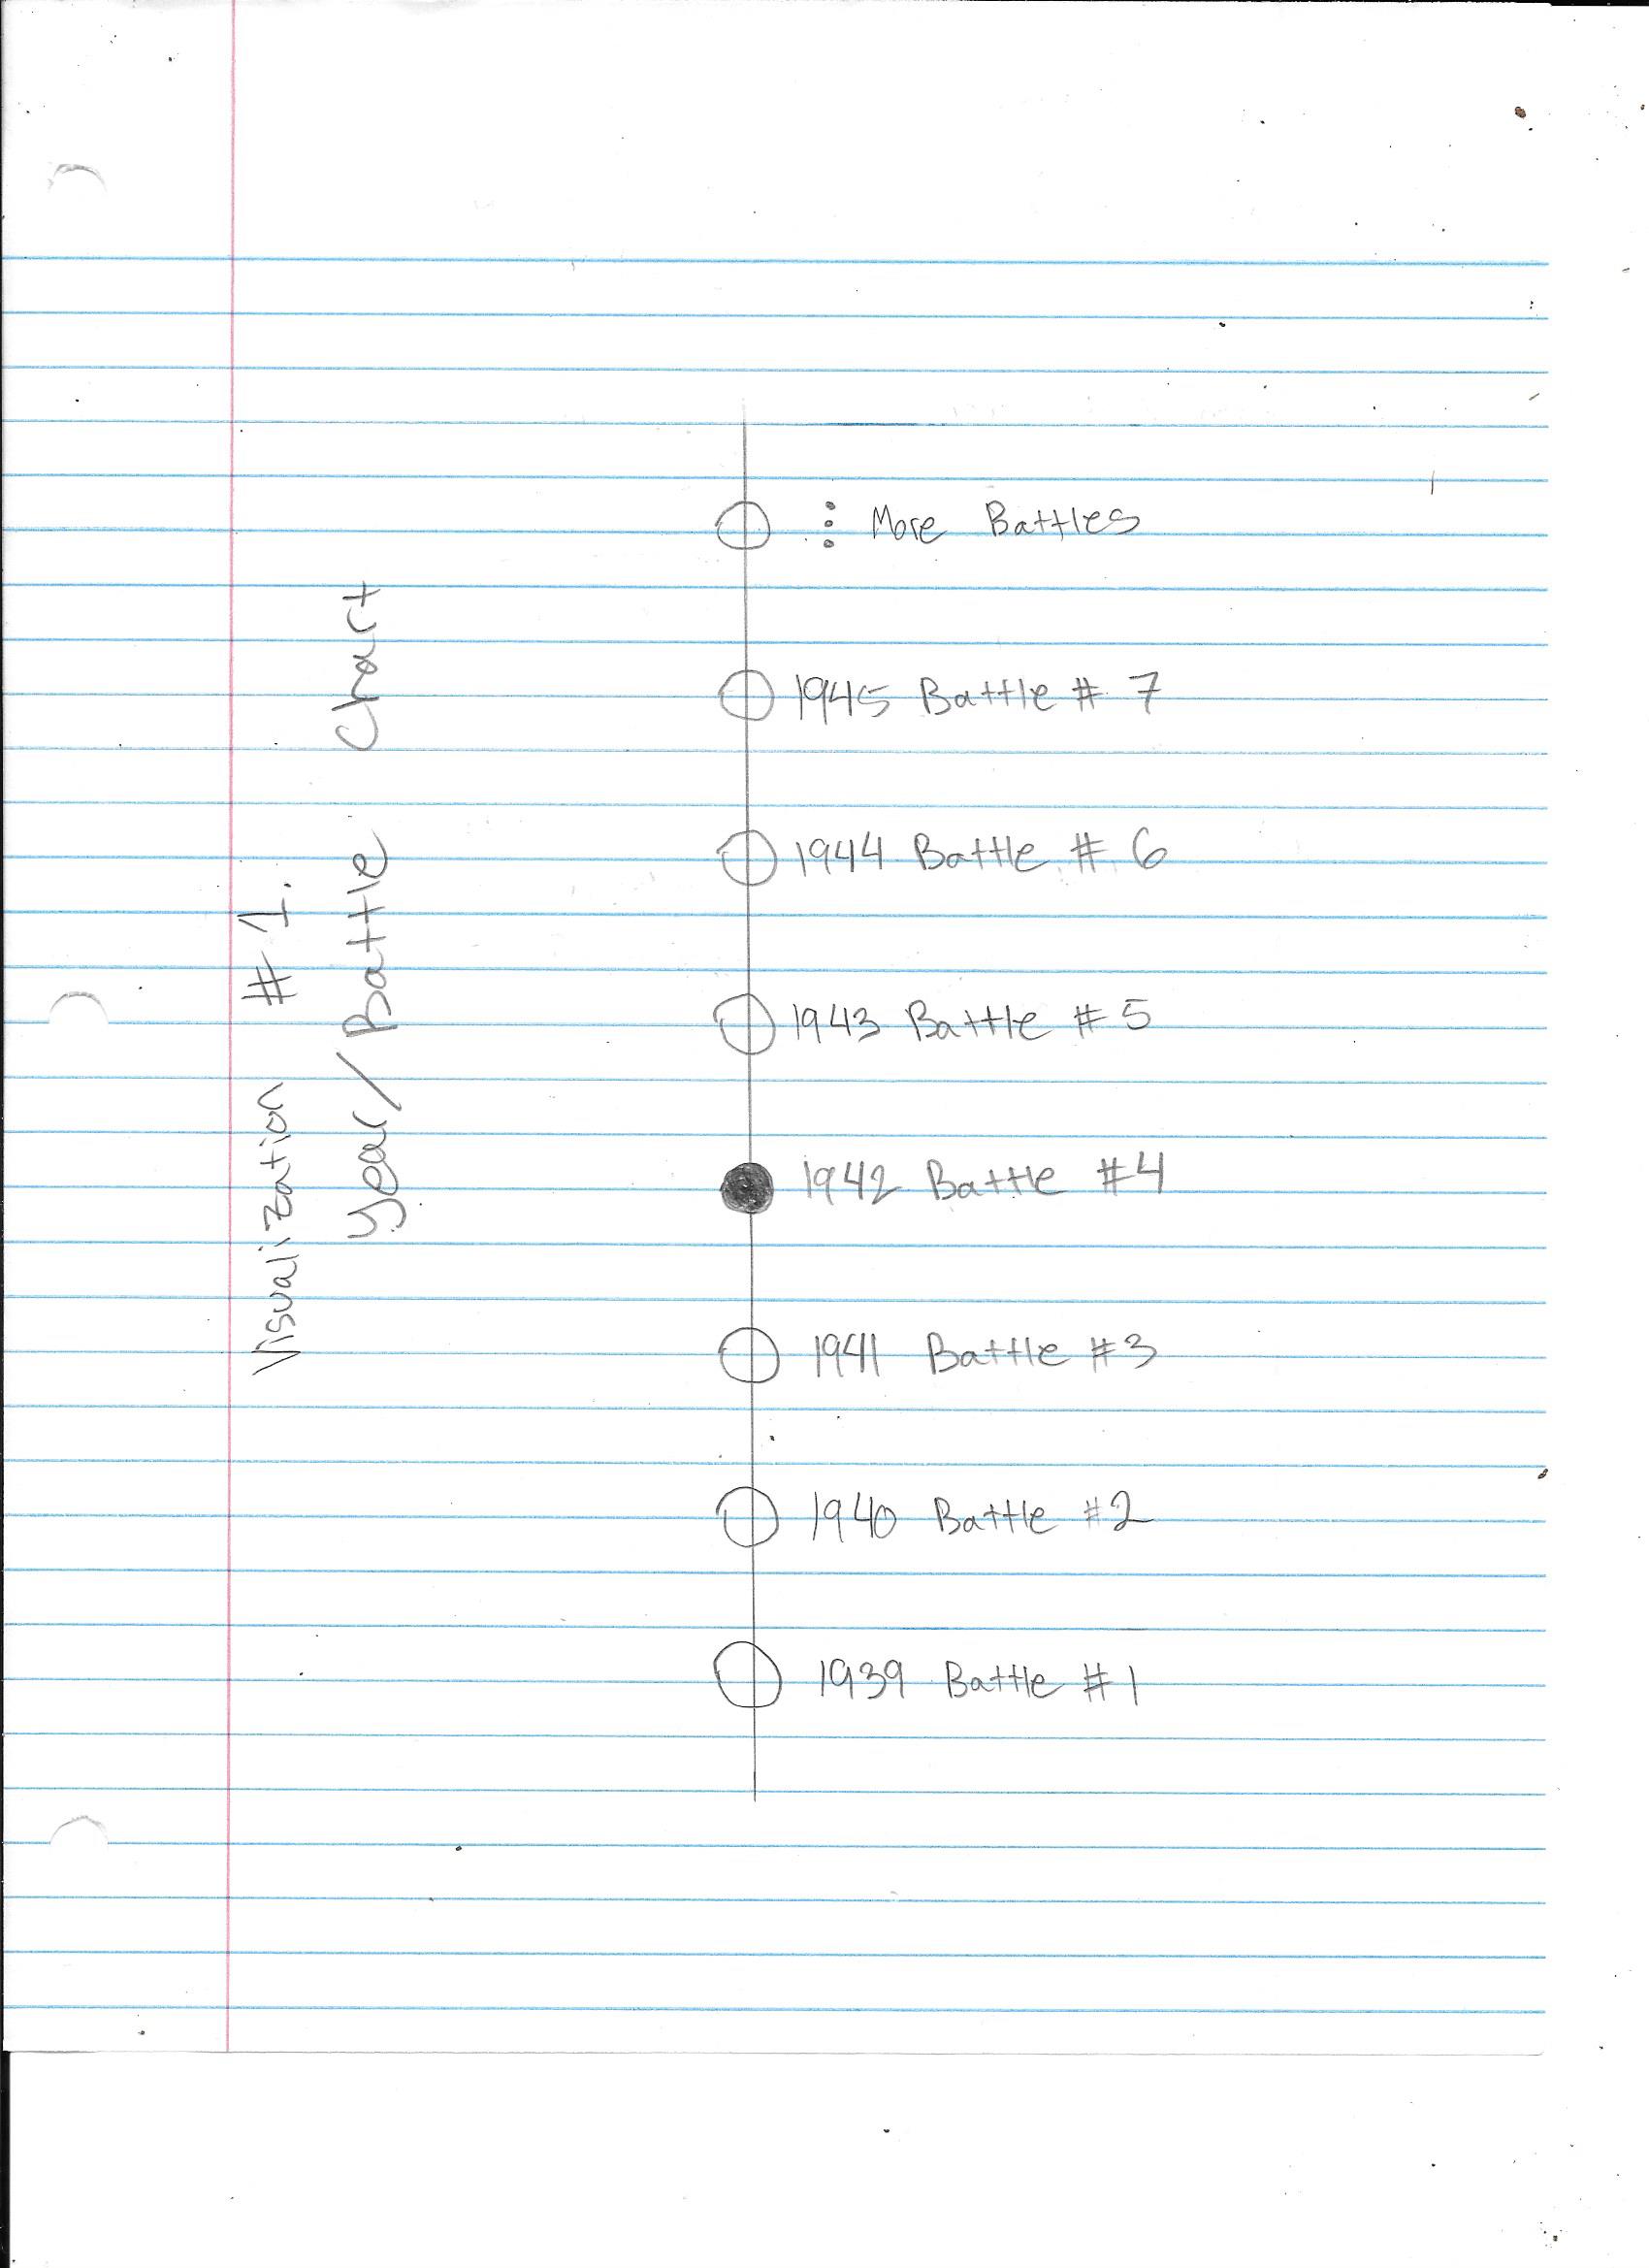 Visualization # 1.
Year/Battle Chart
⋮ More Battles
1945 Battle # 7
1944 Battle # 6
1943 Battle # 5
1942 Battle #4
1941 Battle #3
1940 Battle #2
1939 Battle #1